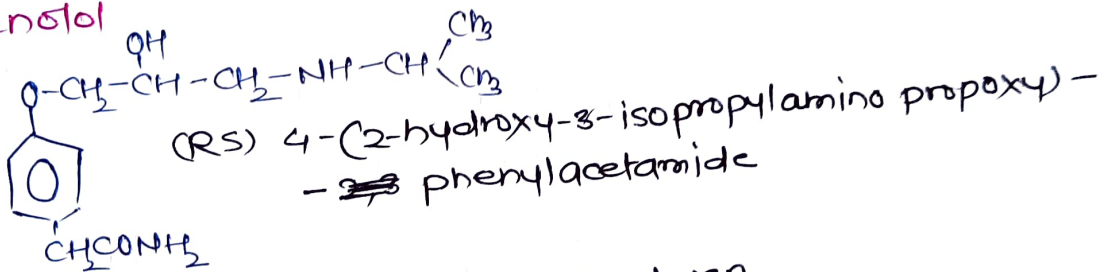 nolol
OH
CH3
O-CH2-CH-CH2-NH-CH
CH3
(RS) 4-(2-hydroxy-3-isopropylamino propoxy)-
- phenylacetamide
CH2CONH2